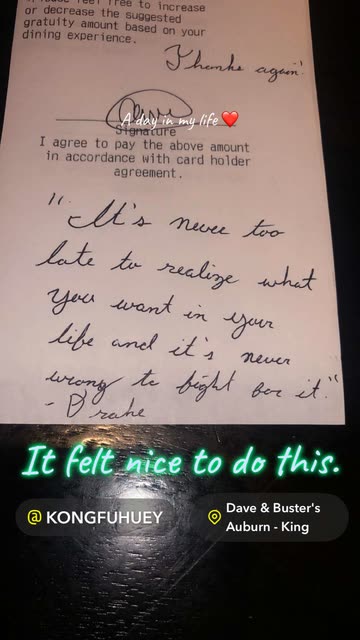 please feel free to increase
or decrease the suggested
gratuity amount based on your
dining experience.
Thanks again!
A day in my life ❤️
Signature
I agree to pay the above amount
in accordance with card holder
agreement.
"It's never too
late to realize what
you want in your
life and it's never
wrong to fight for it."
- Drake
It felt nice to do this.
@KONGFUHUEY
Dave & Buster's
Auburn - King